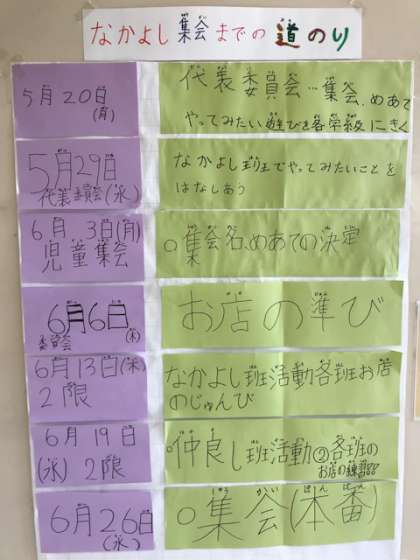 なかよし集会までの道のり
5月20日
(月)
代表委員会…集会、めあて
やってみたい遊びを各学級にきく
5月29日
代表委員会(水)
なかよし班でやってみたいことを
はなしあう
6月3日(月)
児童集会
○集会名、めあての決定
6月6日
委員会(木)
お店の準び
6月13日(木)
2限
なかよし班活動各班お店
のじゅんび
6月19日
(水)2限
○仲良し班活動②各班の
お店の練習
6月26日
(水)
○集会(本番)